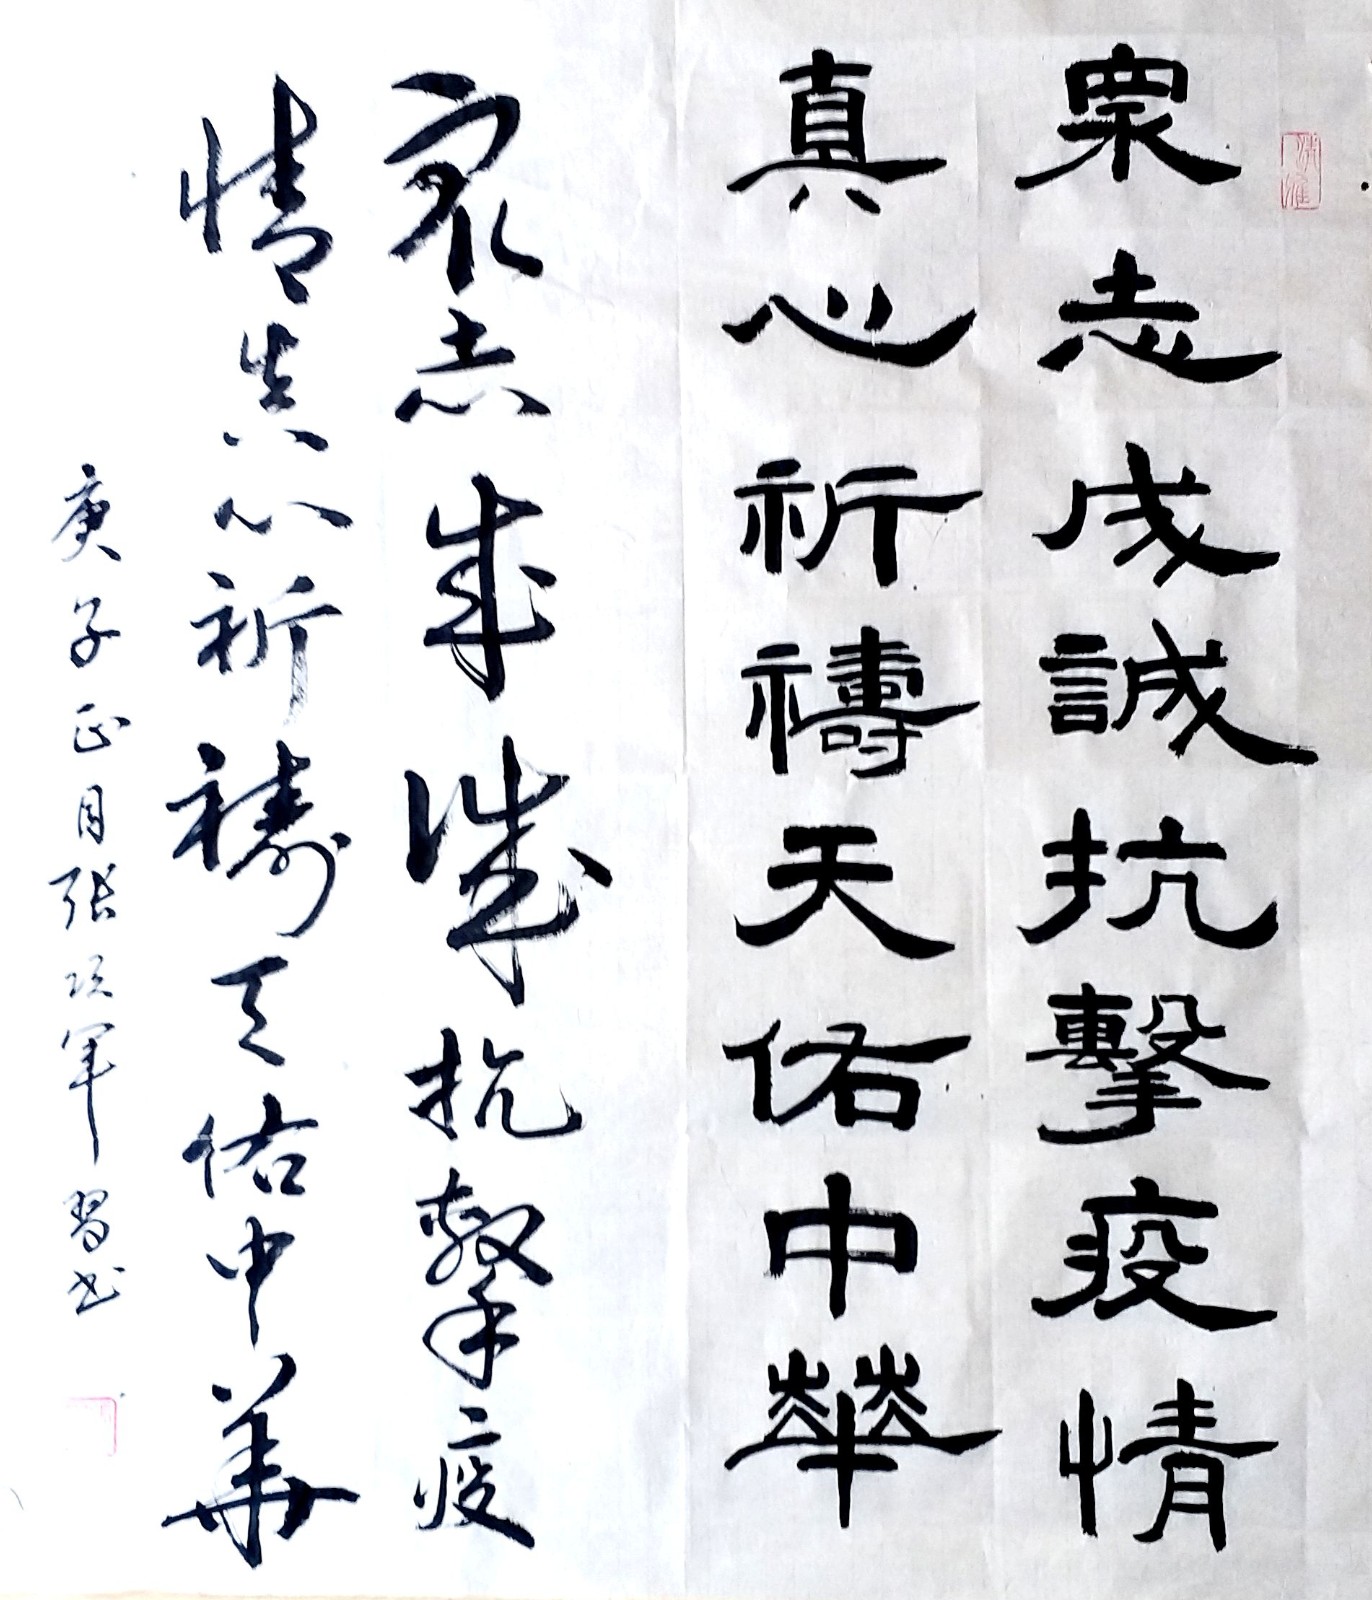 眾志成誠抗擊疫情
真心祈禱天佑中華
众志成誠抗擊疫
情真心祈禱天佑中華
庚子正月張項軍習书